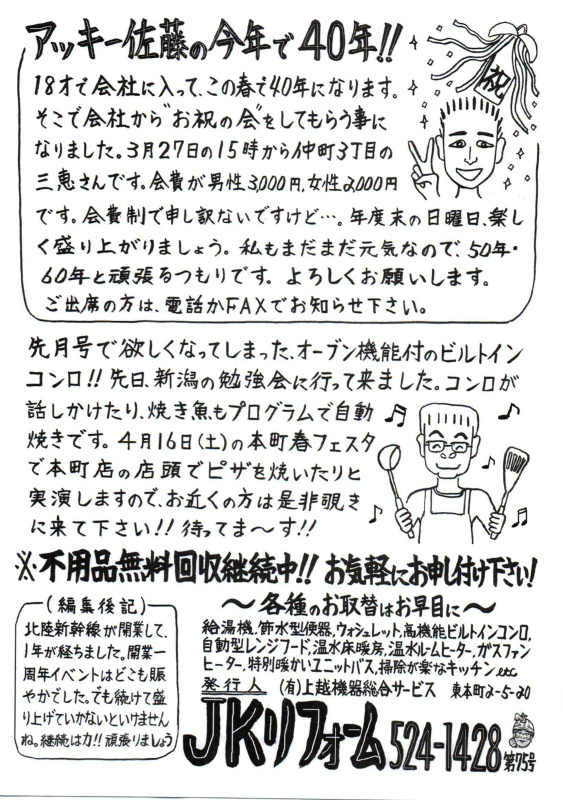 アッキー佐藤の今年で40年!!
祝
18才で会社に入って、この春で40年になります。
そこで会社から"お祝の会"をしてもらう事に
なりました。3月27日の15時から仲町3丁目の
三恵さんです。会費が男性3,000円,女性2,000円
です。会費制で申し訳ないですけど…。年度末の日曜日、楽し
く盛り上がりましょう。私もまだまだ元気なので、50年・
60年と頑張るつもりです。よろしくお願いします。
ご出席の方は、電話かFAXでお知らせ下さい。
先月号で欲しくなってしまった、オーブン機能付のビルトイン
コンロ!!先日、新潟の勉強会に行って来ました。コンロが
話しかけたり、焼き魚もプログラムで自動
焼きです。4月16日(土)の本町春フェスタ
で本町店の店頭でピザを焼いたりと
実演しますので、お近くの方は是非覗き
に来て下さい!!待ってま〜す!!
※不用品無料回収継続中!!お気軽にお申し付け下さい!
(編集後記)
北陸新幹線が開業して、
1年が経ちました。開業一
周年イベントはどこも賑
やかでした。でも続けて盛
り上げていかないといけません
ね。継続は力!!頑張りましょう
〜各種のお取替はお早目に〜
給湯機,節水型便器,ウォシュレット,高機能ビルトインコンロ,
自動型レンジフード,温水床暖房,温水ルームヒーター,ガスファン
ヒーター,特別暖かいユニットバス,掃除が楽なキッチンetc
発行人 (有)上越機器総合サービス 東本町2-5-20
JKリフォーム 524-1428 第75号